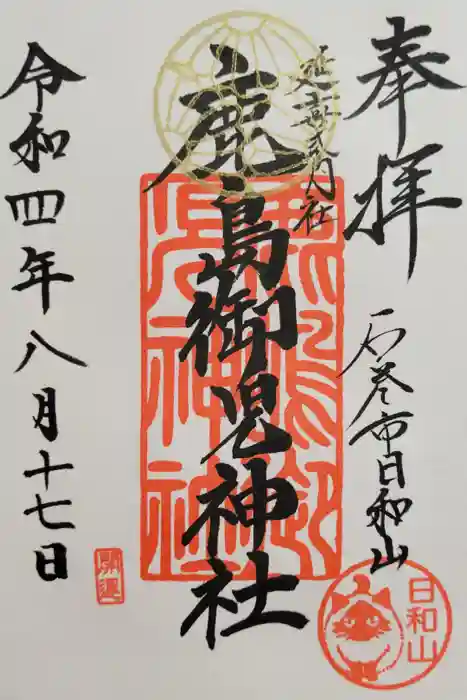 奉拝
石巻市日和山
延喜式内社
鹿島御児神社
令和四年八月十七日
日和山